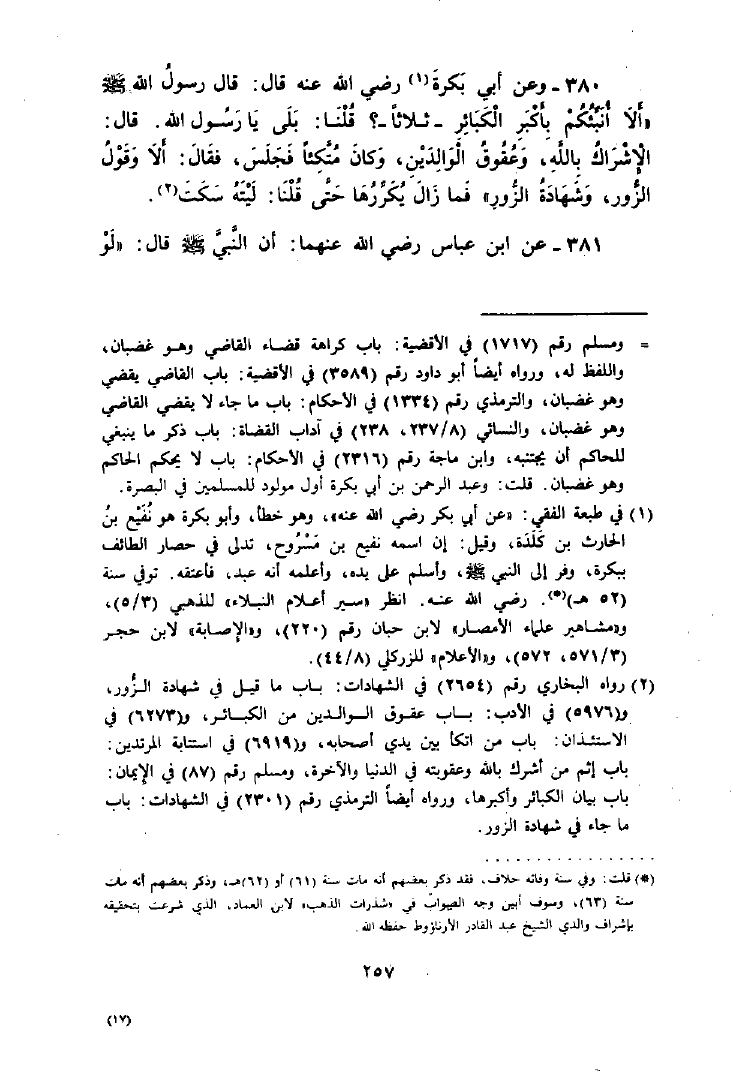 ٣٨٠ ـ وعن أبي بَكرةَ(١) رضي الله عنه قال: قال رسولُ الله ﷺ
«أَلاَ أُنَبِّئُكُمْ بِأَكْبَرِ الْكَبَائِرِ ـ ثـلاثاً ـ؟ قُلْنَـا: بَلَى يَا رَسُـول الله. قال:
الإِشْرَاكُ بِاللَّهِ، وَعُقُوقُ الْوَالِدَيْنِ، وَكَانَ مُتَّكِئاً فَجَلَسَ، فَقَالَ: أَلاَ وَقَوْلُ
الزُّورِ، وَشَهَادَةُ الزُّورِ» فَما زَالَ يُكَرِّرُهَا حَتَّى قُلْنَا: لَيْتَهُ سَكَتَ(٢).
٣٨١ ـ عن ابن عباس رضي الله عنهما: أن النَّبيَّ ﷺ قال: «لَوْ
= ومسلم رقم (١٧١٧) في الأقضية: باب كراهة قضـاء القاضي وهـو غضبان،
واللفظ له، ورواه أيضاً أبو داود رقم (٣٥٨٩) في الأقضية: باب القاضي يقضي
وهو غضبان، والترمذي رقم (١٣٣٤) في الأحكام: باب ما جاء لا يقضي القاضي
وهو غضبان، والنسائي (٢٣٧/٨، ٢٣٨) في آداب القضاة: باب ذكر ما ينبغي
للحاكم أن يجتنبه، وابن ماجة رقم (٢٣١٦) في الأحكام: باب لا يحكم الحاكم
وهو غضبان. قلت: وعبد الرحمن بن أبي بكرة أول مولود للمسلمين في البصرة.
(١) في طبعة الفقي: «عن أبي بكر رضي الله عنه»، وهو خطأ، وأبو بكرة هو نُفَيْع بنُ
الحارث بن كَلَدَة، وقيل: إن اسمه نفيع بن مَسْرُوح، تدلى في حصار الطائف
ببكرة، وفر إلى النبي ﷺ، وأسلم على يده، وأعلمه أنه عبد، فأعتقه. توفي سنة
(٥٢ هـ)(*). رضي الله عنـه. انظر «سـير أعـلام النبـلاء» للذهبي (٥/٣)،
و«مشـاهير علماء الأمصـار» لابن حبان رقم (٢٢٠)، و«الإصـابة» لابن حجـر
(٥٧١/٣، ٥٧٢)، و«الأعلام» للزركلي (٤٤/٨).
(٢) رواه البخاري رقم (٢٦٥٤) في الشهادات: بـاب ما قيـل في شهادة الـزُّور،
و(٥٩٧٦) في الأدب: بـاب عقـوق الـوالـدين من الكبـائـر، و(٦٢٧٣) في
الاستئـذان: باب من اتكأ بين يدي أصحابه، و(٦٩١٩) في استتابة المرتدين:
باب إثم من أشرك بالله وعقوبته في الدنيا والآخرة، ومسلم رقم (٨٧) في الإيمان:
باب بيان الكبائر وأكبرها، ورواه أيضاً الترمذي رقم (٢٣٠١) في الشهادات: باب
ما جاء في شهادة الزور.
(*) قلت: وفي سنة وفاته خلاف، فقد ذكر بعضهم أنه مات سنة (٦١) أو (٦٢)هـ، وذكر بعضهم أنه مات
سنة (٦٣)، وسوف أبين وجه الصواب في «شذرات الذهب» لابن العماد، الذي شرعت بتحقيقه
بإشراف والدي الشيخ عبد القادر الأرناؤوط حفظه الله.
٢٥٧
(١٧)